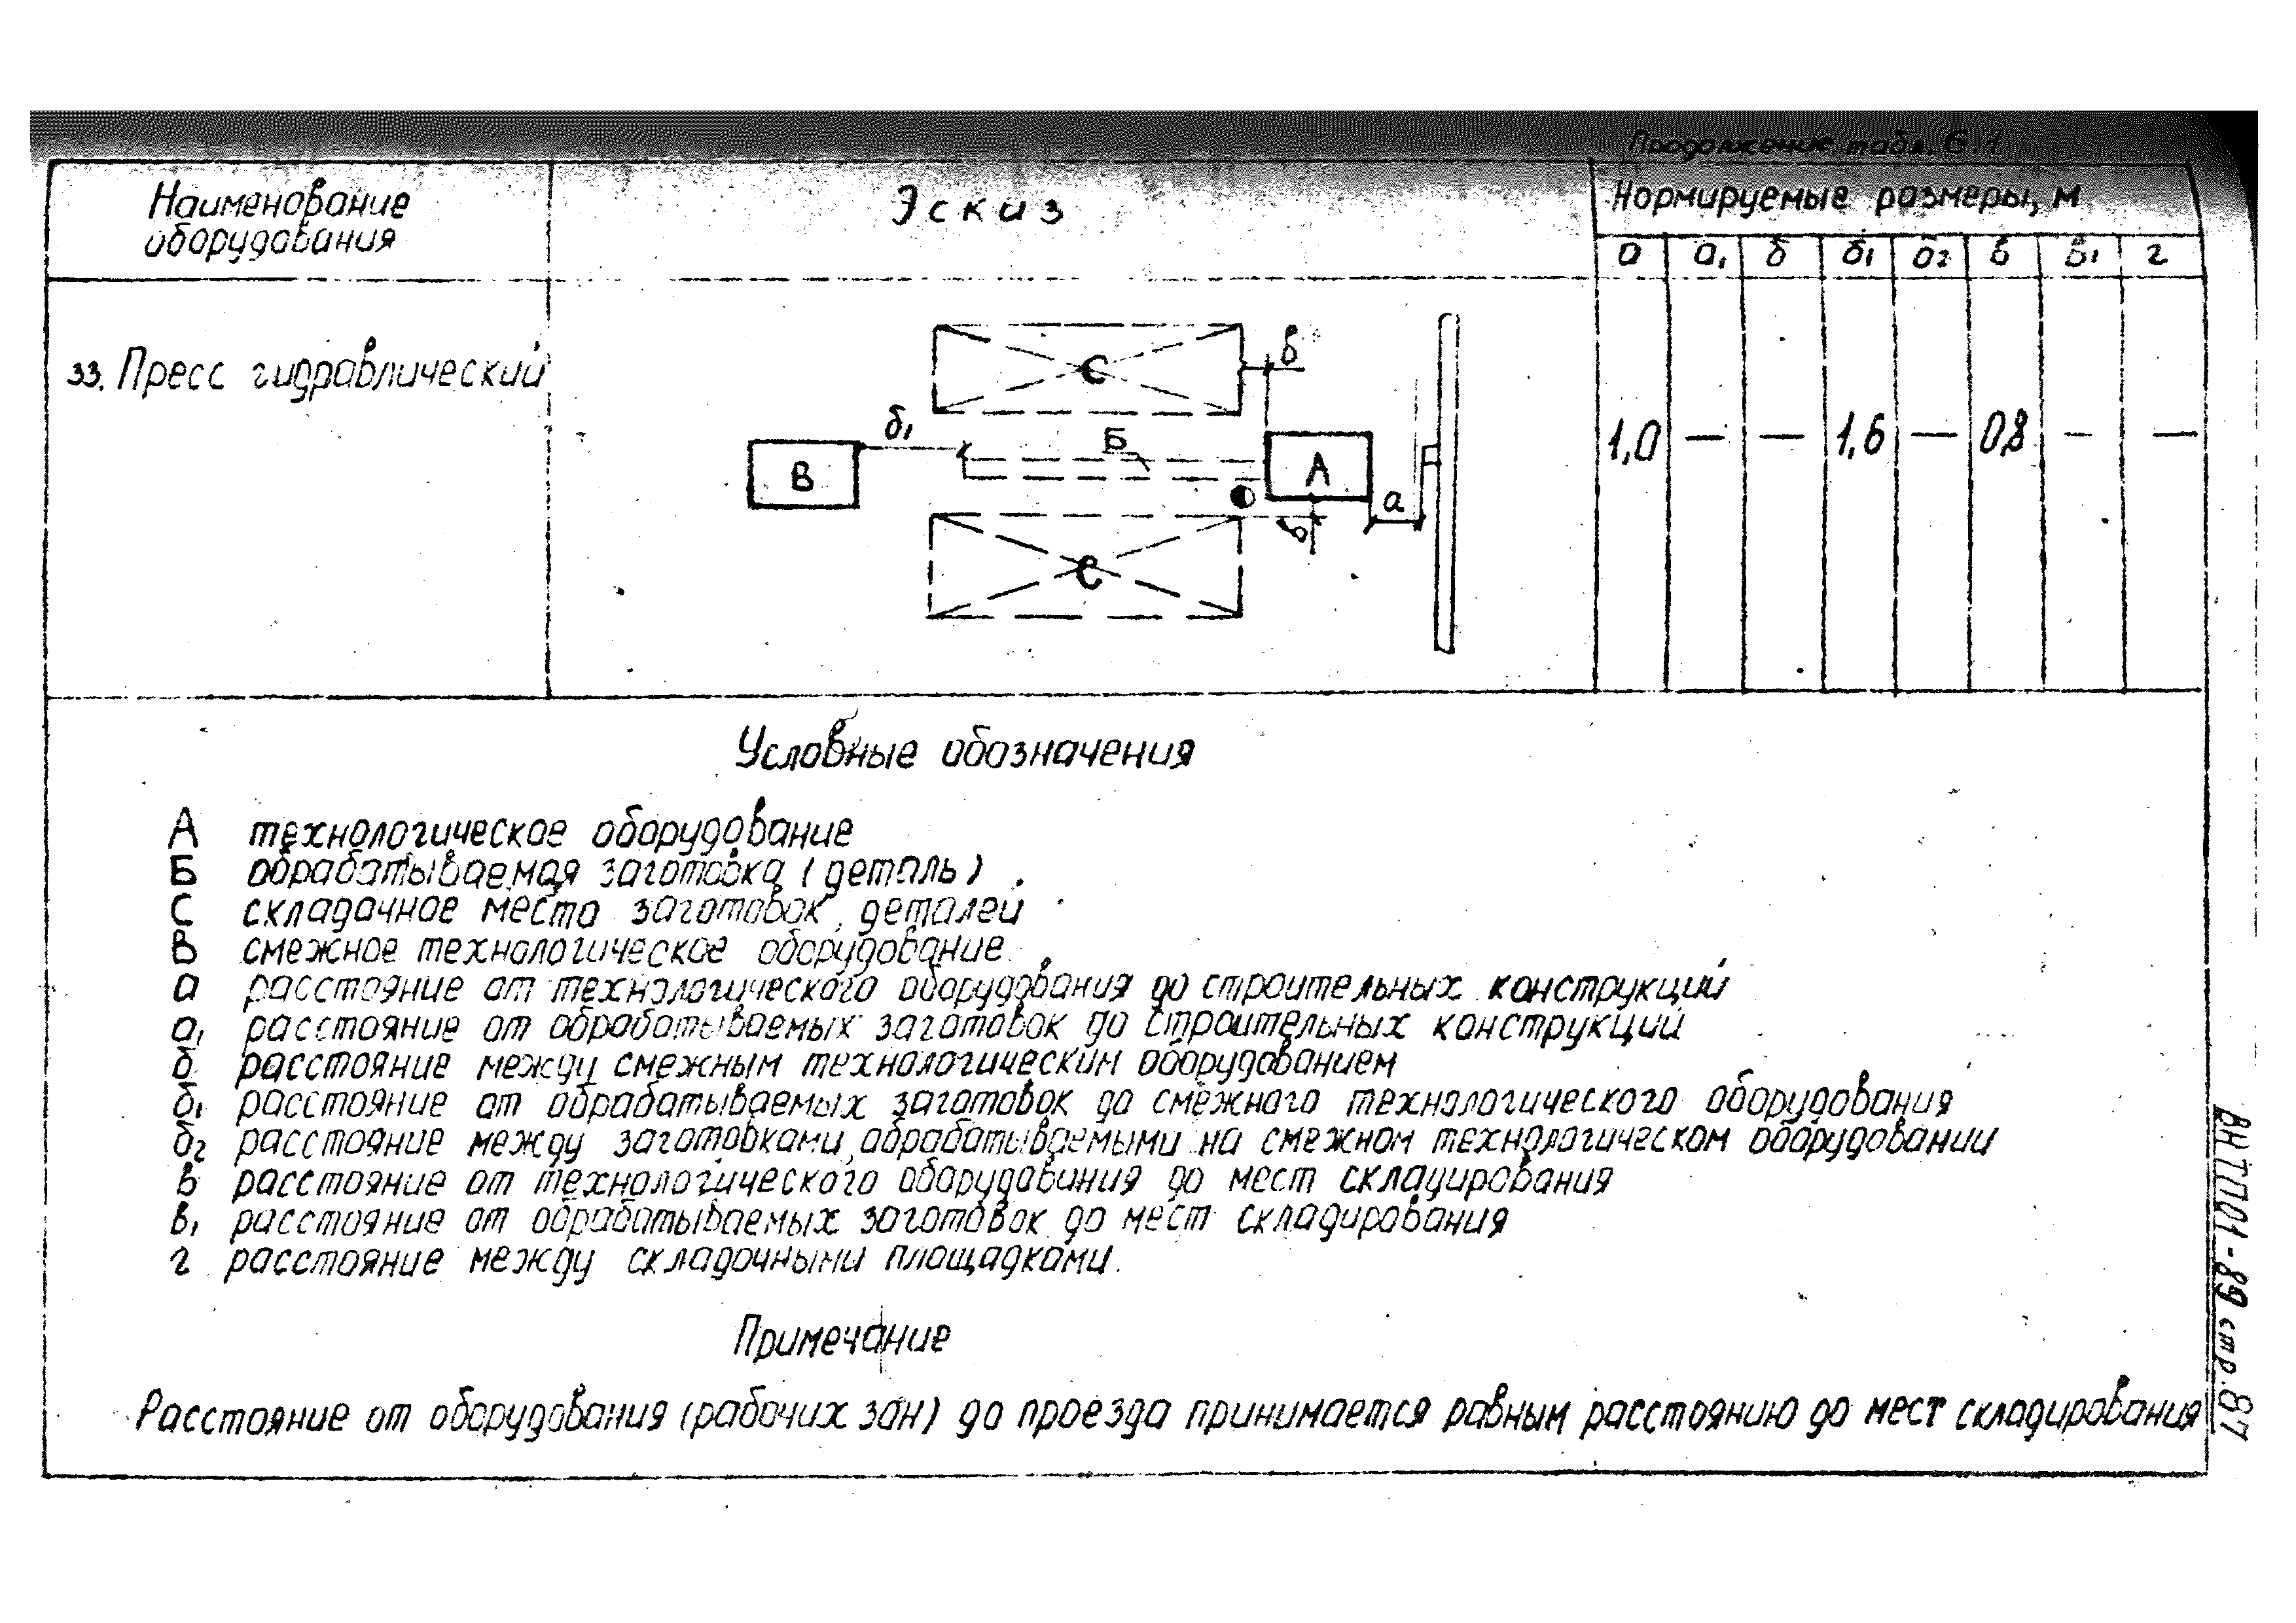 Продолжение табл. 6.1
Наименование оборудования
Эскиз
Нормируемые размеры, м
а а₁ б б₁ б₂ в в₁ г
33. Пресс гидравлический
С
в
б₁
Б
В
А
а
в
С
1,0 — — 1,6 — 0,8 — —
Условные обозначения
А технологическое оборудование
Б обрабатываемая заготовка (деталь)
С складочное место заготовок, деталей
В смежное технологическое оборудование
а расстояние от технологического оборудования до строительных конструкций
а₁ расстояние от обрабатываемых заготовок до строительных конструкций
б расстояние между смежным технологическим оборудованием
б₁ расстояние от обрабатываемых заготовок до смежного технологического оборудования
б₂ расстояние между заготовками, обрабатываемыми на смежном технологическом оборудовании
в расстояние от технологического оборудования до мест складирования
в₁ расстояние от обрабатываемых заготовок до мест складирования
г расстояние между складочными площадками.
Примечание
Расстояние от оборудования (рабочих зон) до проезда принимается равным расстоянию до мест складирования
ВНТП 01-89 стр. 87